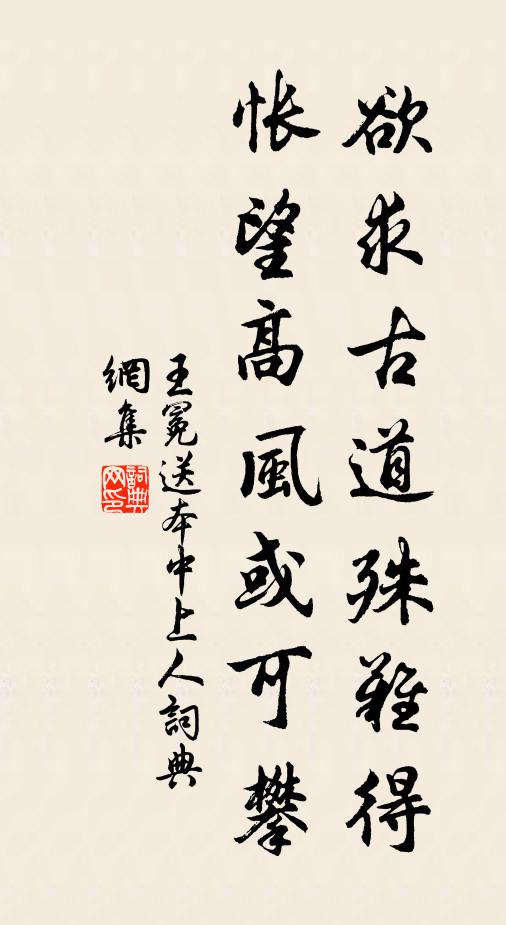 欲求古道殊難得
悵望高風或可攀
王冕送本中上人詞典
網集
詞典
网印